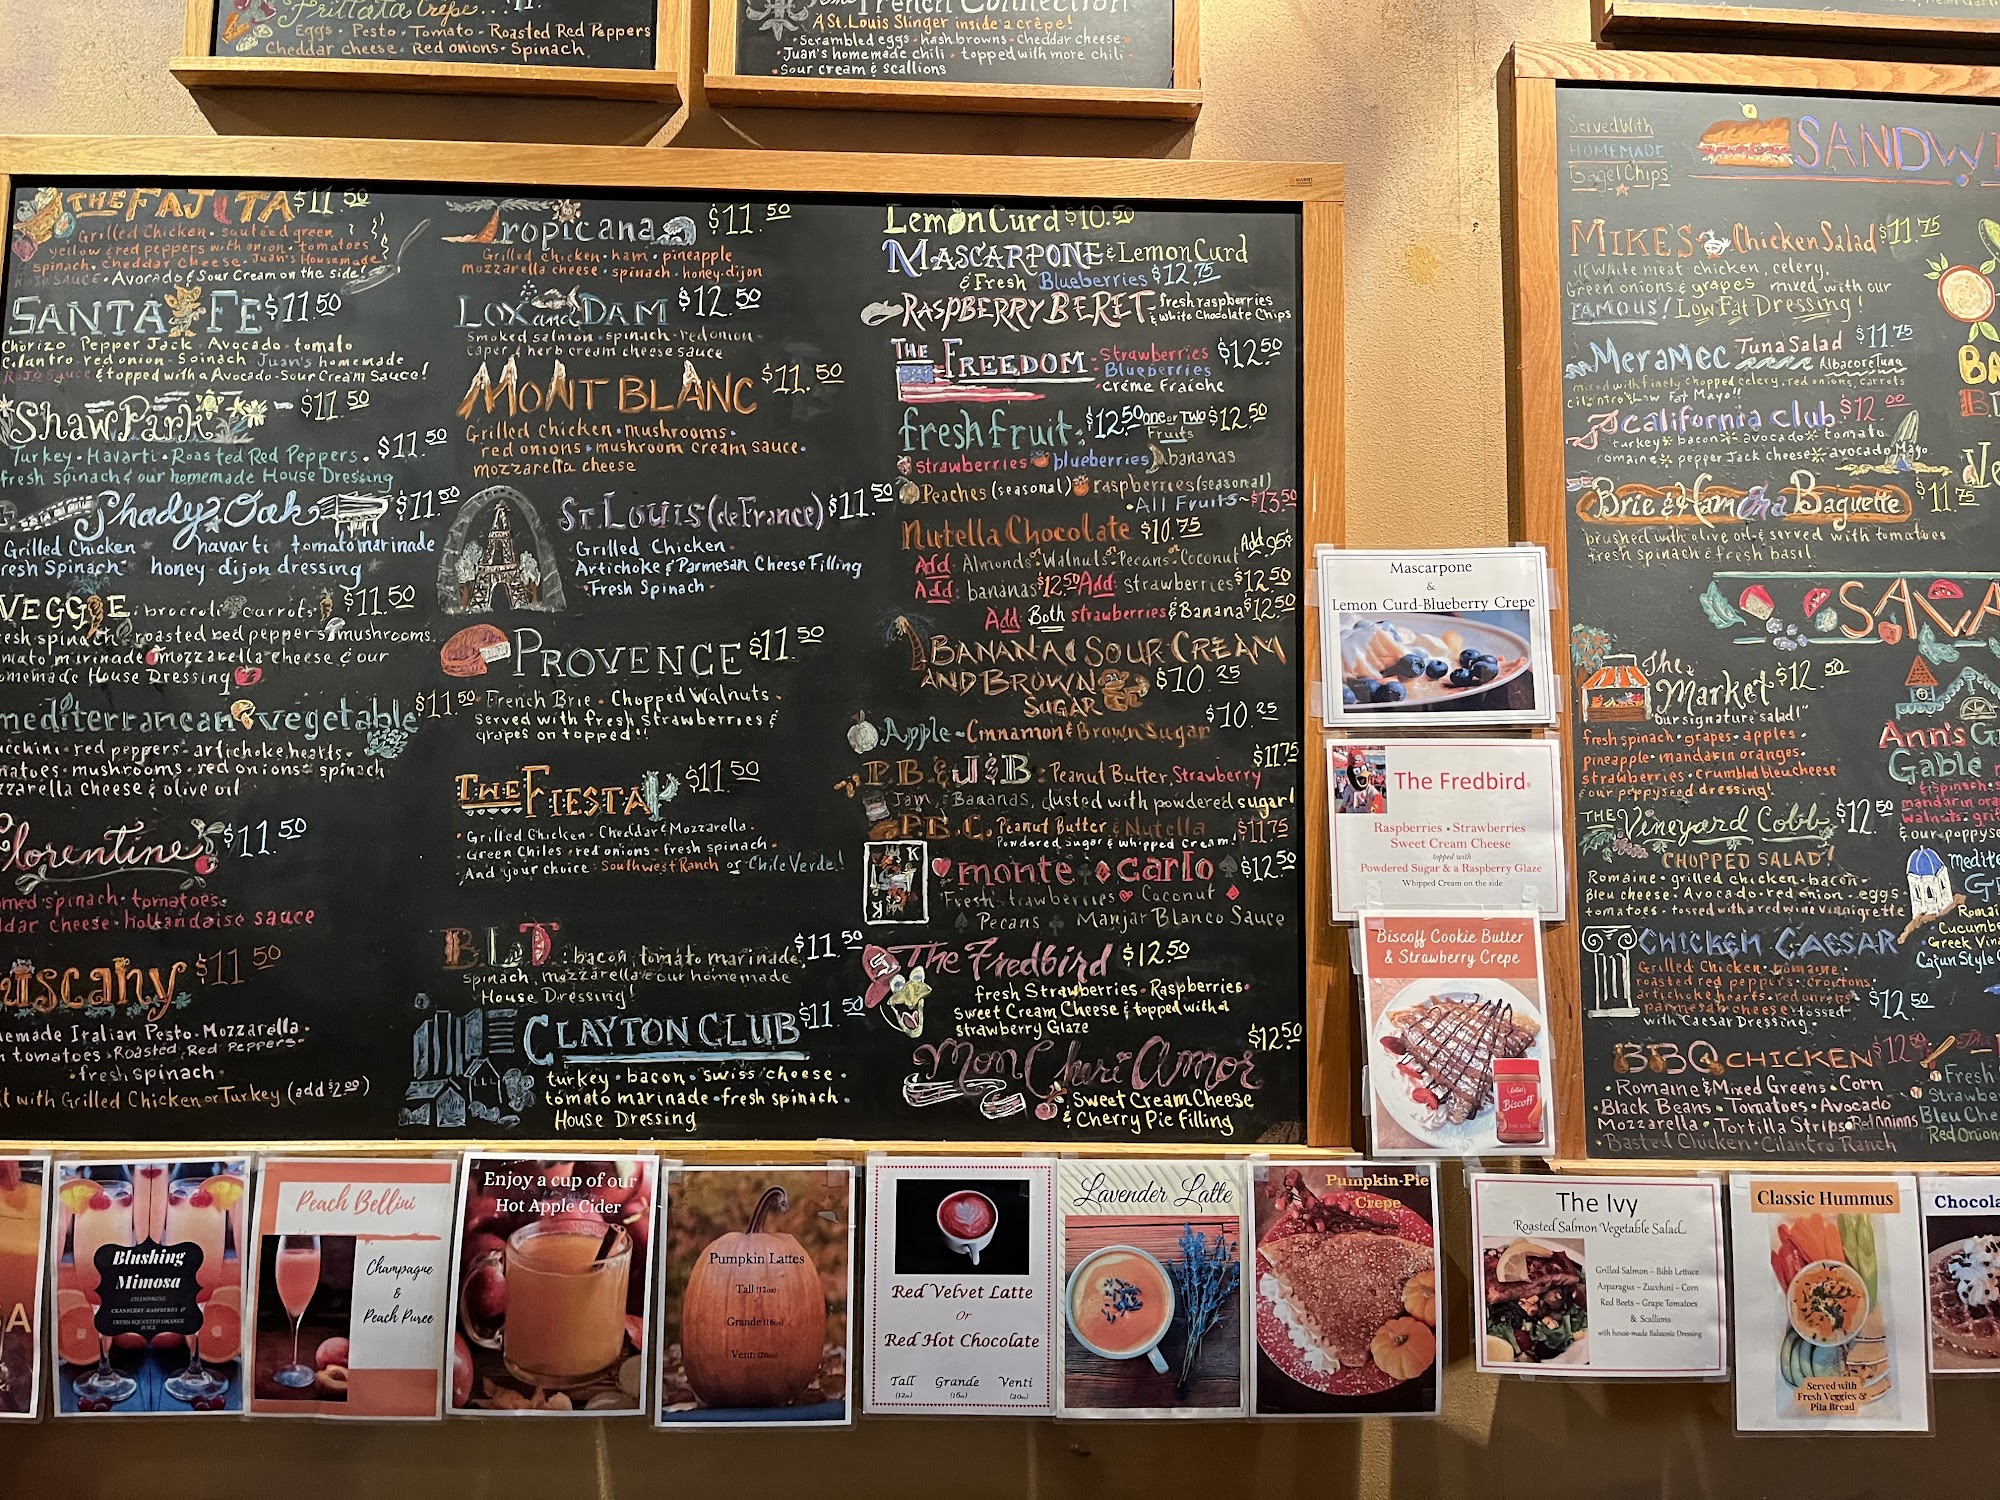 Frittata Crêpe...
Eggs • Pesto • Tomato • Roasted Red Peppers
Cheddar cheese • Red onions • Spinach
French Connection
A St. Louis Slinger inside a crêpe!
• Scrambled eggs • hash browns • cheddar cheese •
• Juan's homemade chili • topped with more chili •
• Sour cream & scallions
THE FAJITA $11.50
Grilled Chicken • sautéed green
yellow & red peppers with onion • tomatoes
spinach • Cheddar Cheese • Juan's Housemade
Rojo Sauce • Avocado & Sour Cream on the side!
SANTA FE $11.50
Chorizo • Pepper Jack • Avocado • tomato
Cilantro • red onion • Spinach • Juan's homemade
Rojo Sauce & topped with a Avocado-Sour Cream Sauce!
Shaw Park - $11.50
Turkey • Havarti • Roasted Red Peppers • $11.50
fresh spinach & our homemade House Dressing
Shady Oak $11.50
Grilled Chicken havarti tomato marinade
resh Spinach honey dijon dressing
VEGGIE: broccoli carrots $11.50
esh spinach roasted red peppers mushrooms
mato marinade mozzarella cheese & our
omemade House Dressing
mediterranean vegetable $11.50
ucchini • red peppers • artichoke hearts •
matoes • mushrooms • red onions • spinach
zzarella cheese & olive oil
Florentine $11.50
med spinach • tomatoes •
ddar cheese • hollandaise sauce
uscany $11.50
emade Italian Pesto • Mozzarella •
tomatoes • Roasted Red Peppers •
• fresh spinach •
t with Grilled Chicken or Turkey (add $2.00)
Tropicana $11.50
Grilled chicken • ham • pineapple
mozzarella cheese • spinach • honey-dijon
LOX and DAM $12.50
Smoked salmon • spinach • red onion •
caper & herb cream cheese sauce
MONT BLANC $11.50
Grilled chicken • mushrooms •
red onions • mushroom cream sauce •
mozzarella cheese
ST. LOUIS (de France) $11.50
Grilled Chicken •
Artichoke & Parmesan Cheese Filling
• Fresh Spinach •
PROVENCE $11.50
French Brie • Chopped Walnuts •
served with fresh strawberries &
grapes on topped!!
THE FIESTA $11.50
• Grilled Chicken • Cheddar & Mozzarella •
• Green Chiles • red onions • fresh spinach •
• And your choice: Southwest Ranch or Chile Verde!
B.L.T.: bacon, tomato marinade, $11.50
spinach, mozzarella & our homemade
House Dressing!
CLAYTON CLUB $11.50
turkey • bacon • swiss cheese •
tomato marinade • fresh spinach •
House Dressing
Lemon Curd $10.50
MASCARPONE & Lemon Curd
& Fresh Blueberries $12.75
RASPBERRY BERET fresh raspberries
& White Chocolate Chips
THE FREEDOM - Strawberries $12.50
Blueberries
créme Fraîche
fresh fruit: $12.50 one or Two $12.50
Fruits
strawberries blueberries bananas
Peaches (seasonal) raspberries (seasonal)
• All Fruits ~ $13.50
Nutella Chocolate $10.75
Add: Almonds or Walnuts or Pecans or Coconut Add .95¢
Add: bananas $12.50 Add: strawberries $12.50
Add: Both strawberries & Banana $12.50
BANANA SOUR CREAM
AND BROWN $10.25
SUGAR
Apple ~ Cinnamon & Brown Sugar $10.25
P.B. & J & B: Peanut Butter, Strawberry $11.75
Jam, Bananas, dusted with powdered sugar!
P.B.C. Peanut Butter & Nutella $11.75
Powdered sugar & whipped cream!
monte carlo $12.50
Fresh strawberries Coconut
Pecans Manjar Blanco Sauce
The Fredbird $12.50
fresh Strawberries • Raspberries •
Sweet Cream Cheese & topped with a
strawberry Glaze
Mon Cheri Amor $12.50
Sweet Cream Cheese
& Cherry Pie Filling
Mascarpone
&
Lemon Curd-Blueberry Crepe
The Fredbird
Raspberries • Strawberries
Sweet Cream Cheese
topped with
Powdered Sugar & a Raspberry Glaze
Whipped Cream on the side
Biscoff Cookie Butter
& Strawberry Crepe
Biscoff
Served With
HOMEMADE
Bagel Chips
SANDW
MIKE'S Chicken Salad $11.75
all White meat chicken, celery,
Green onions & grapes mixed with our
FAMOUS! Low Fat Dressing!
MERAMEC Tuna Salad $11.75
Albacore Tuna
mixed with finely chopped celery, red onions, carrots
cilantro & Low Fat Mayo!!
California Club $12.00
turkey bacon avocado tomato
romaine pepper Jack cheese avocado Mayo
Brie & Ham on a Baguette $11.75
brushed with olive oil & served with tomatoes
fresh spinach & fresh basil
SALA
The Market $12.50
"our signature salad!"
fresh spinach • grapes • apples •
pineapple • mandarin oranges •
strawberries • crumbled bleu cheese
& our poppyseed dressing!
THE Vineyard Cobb $12.50
CHOPPED SALAD!
Romaine • grilled chicken • bacon •
Bleu cheese • Avocado • red onion • eggs
tomatoes • tossed with a red wine vinnigrette
CHICKEN CAESAR
Grilled Chicken • romaine •
roasted red peppers • croutons •
artichoke hearts • red onions $12.50
parmesan cheese • tossed
with Caesar Dressing •
BBQ CHICKEN $12.50
• Romaine & Mixed Greens • Corn
• Black Beans • Tomatoes • Avocado
Mozzarella • Tortilla Strips • Red Onions
• Basted Chicken • Cilantro Ranch
Ann's G
Gable
spinach
mandarin ora
walnuts • gri
& our poppyse
Medite
G
Romai
• Cucumbe
• Greek Vina
Cajun Style C
Fresh
Strawbe
Bleu Che
Red Onion
Blushing
Mimosa
CHAMPAGNE
CRANBERRY-RASPBERRY &
FRESH SQUEEZED ORANGE
JUICE
Peach Bellini
Champagne
&
Peach Puree
Enjoy a cup of our
Hot Apple Cider
Pumpkin Lattes
Tall (12oz)
Grande (16oz)
Venti (20oz)
Red Velvet Latte
Or
Red Hot Chocolate
Tall Grande Venti
(12oz) (16oz) (20oz)
Lavender Latte
Pumpkin-Pie
Crepe
The Ivy
Roasted Salmon Vegetable Salad
Grilled Salmon ~ Bibb Lettuce
Asparagus ~ Zucchini ~ Corn
Red Beets ~ Grape Tomatoes
& Scallions
with house-made Balsamic Dressing
Classic Hummus
Served with
Fresh Veggies &
Pita Bread
Chocola